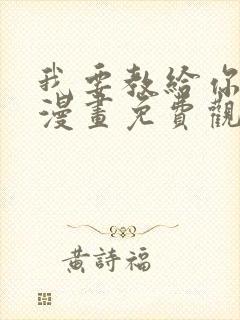 我要教給你
漫畫免費觀
黃詩福